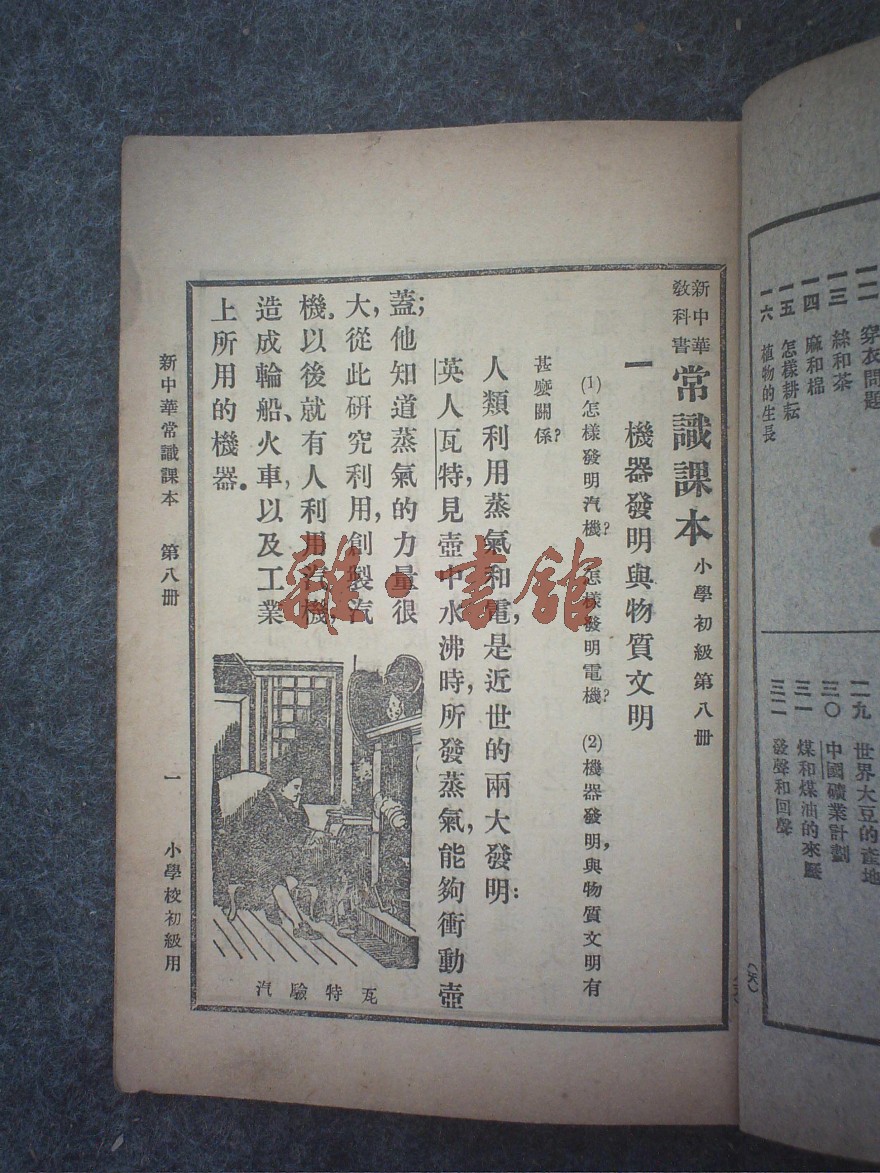 一二 穿衣問題
一三 絲和茶
一四 麻和棉
一五 怎樣耕耘
一六 植物的生長
二九 世界大豆的產地
三〇 中國礦業計劃
三一 煤和煤油的來歷
三二 發聲和回聲
新中華教科書 常識課本 小學初級第八册
一 機器發明與物質文明
(1)怎樣發明汽機？怎樣發明電機？(2)機器發明，與物質文明有
甚麼關係？
人類利用蒸氣和電，是近世的兩大發明：
英人瓦特，見壺中水沸時，所發蒸氣，能夠衝動壺
蓋；他知道蒸氣的力量很
大，從此研究利用，創製汽
機。以後就有人利用汽機，
造成輪船、火車，以及工業
上所用的機器。
瓦特驗汽
新中華常識課本 第八册 一 小學校初級用
雜·書館